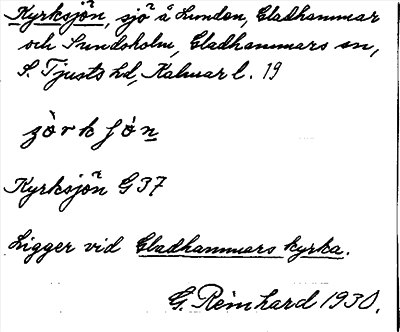 Kyrksjön, sjö å Lunden, Gladhammar
och Sundsholm, Gladhammars sn,
S. Tjusts hd, Kalmar l. 19
Kyrksjön G37
Ligger vid Gladhammars kyrka.
G. Reinhard 1930.